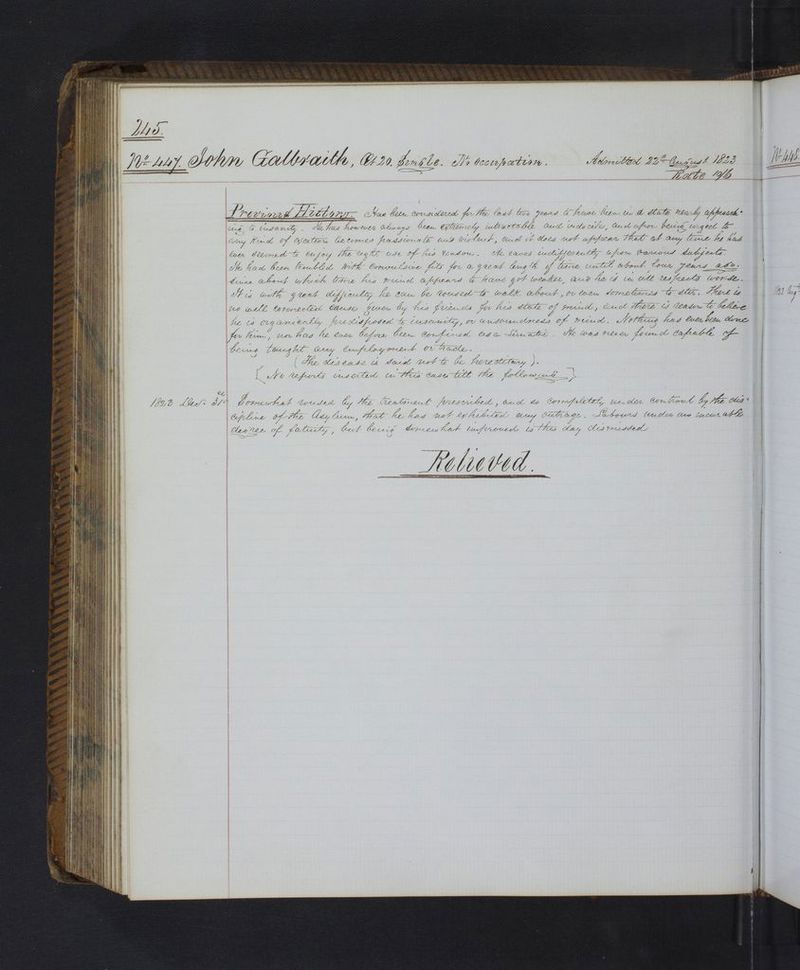 245.
No 447. John Galbraith, Æt 20. Single. No occupation. Admitted 22d August 1823
Rate 10/6
Previous History. Has been considered for the last two years to have been in a state nearly approach-
ing to insanity. He has however always been extremely intractable and indocile, and upon being urged to
any kind of exertion becomes passionate and violent, and it does not appear that at any time he has
ever seemed to enjoy the right use of his reason. He raves indifferently upon various subjects.
He had been troubled with convulsive fits for a great length of time until about four years ago.
since about which time his mind appears to have got weaker, and he is in all respects worse.
It is with great difficulty he can be roused to walk about, or even sometimes to stir. There is
no well connected cause given by his friends for his state of mind, and there is reason to believe
he is organically predisposed to insanity, or unsoundness of mind. Nothing has ever been done
for him, nor has he ever before been confined as a lunatic. He was never found capable of
being taught any employment or trade.
(The disease is said not to be hereditary).
[No reports inserted in this case till the following]
1823 Decr 31st Somewhat roused by the treatment prescribed, and so completely under controul by the dis-
cipline of the Asylum, that he has not exhibited any outrage. Labours under an incurable
degree of fatuity, but being somewhat improved is this day dismissed
Relieved.
No 448.